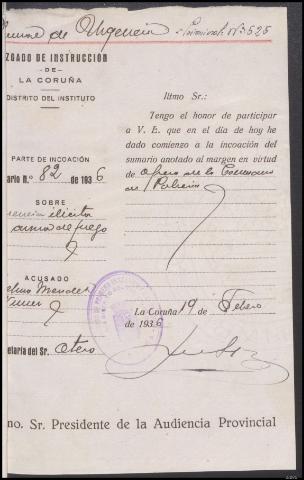 de Urgencia
ZGADO DE INSTRUCCION
- DE -
LA CORUÑA
DISTRITO DEL INSTITUTO
PARTE DE INCOACIÓN
ario n.º 82 de 1936
SOBRE
encia ilícita
arma de fuego
ACUSADO
Mendez
etaría del Sr. Otero
Iltmo Sr.:
Tengo el honor de participar
a V. E. que en el día de hoy he
dado comienzo a la incoación del
sumario anotado al margen en virtud
de de la Comisaria
de Policia
La Coruña 19 de Febero
de 1936
no. Sr. Presidente de la Audiencia Provincial